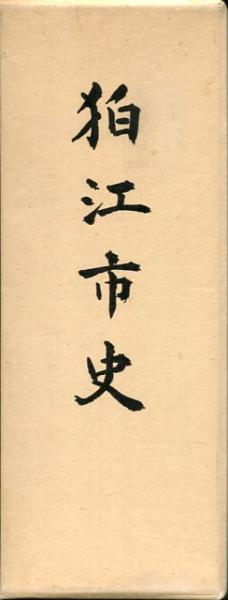 狛江市史